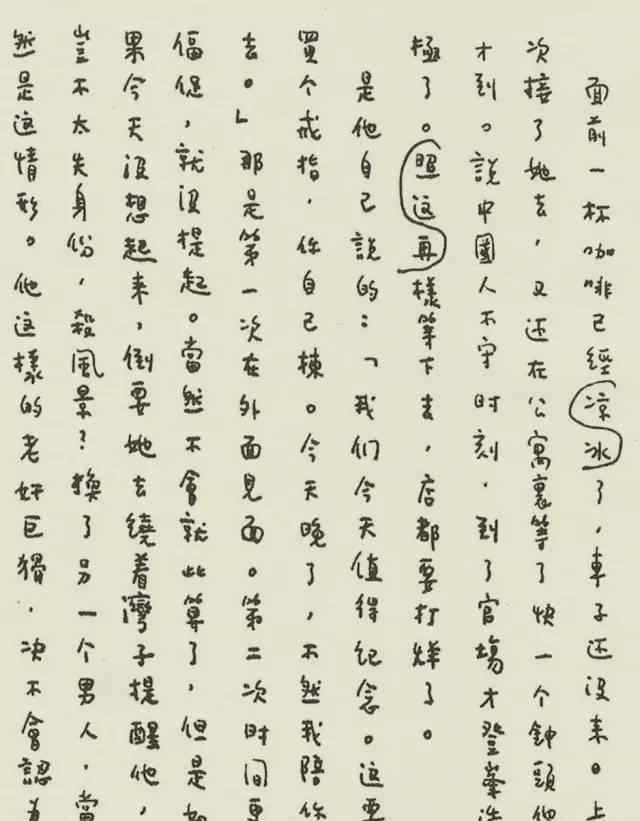 面前一杯咖啡已經涼冰了，車子还没来。上
次接了她去，又还在公寓裏等了快一个鐘頭他
才到。說中國人不守时刻，到了官塲才登峯造
極了。照这再樣等下去，店都要打烊了。
是他自己說的：「我们今天值得纪念。这要
買个戒指，你自己棟。今天晚了，不然我陪你
去。」那是第一次在外面見面。第二次时间更
偪促，就没提起。當然不會就此算了，但是如
果今天没想起来，倒要她去繞着灣子提醒他，
豈不太失身份，殺風景？換了另一个男人，當
然是这情形。他这樣的老奸巨猾，决不會認為